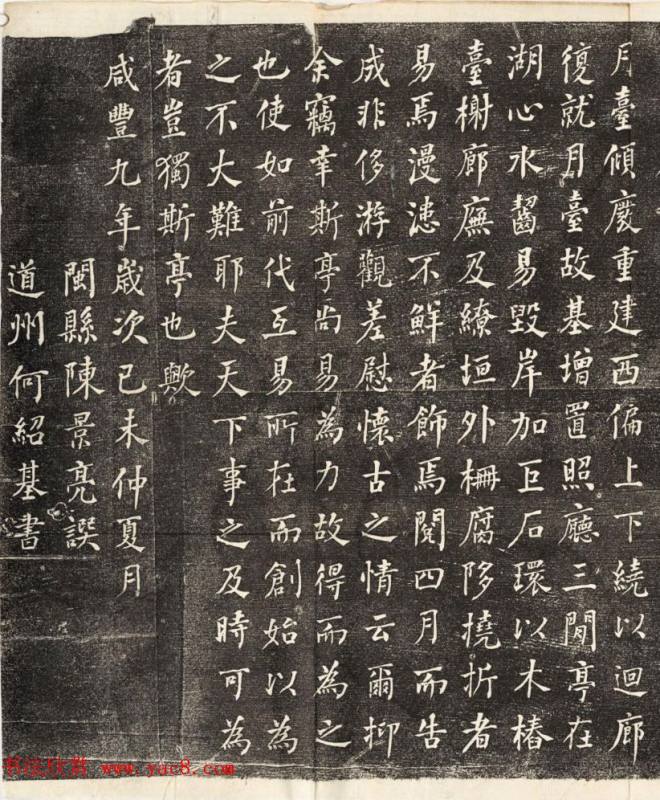 月臺傾廢重建西偏上下繞以迴廊
復就月臺故基增置照廳三間亭在
湖心水齧易毀岸加巨石環以木樁
臺榭廊廡及繚垣外柵腐陊撓折者
易焉漫漶不鮮者飾焉閱四月而告
成非侈游觀差慰懷古之情云爾抑
余竊幸斯亭尚易為力故得而為之
也使如前代互易所在而創始以為
之不大難耶夫天下事之及時可為
者豈獨斯亭也歟
咸豐九年歲次己未仲夏月
閩縣陳景亮譔
道州何紹基書
书法欣赏 www.yac8.com